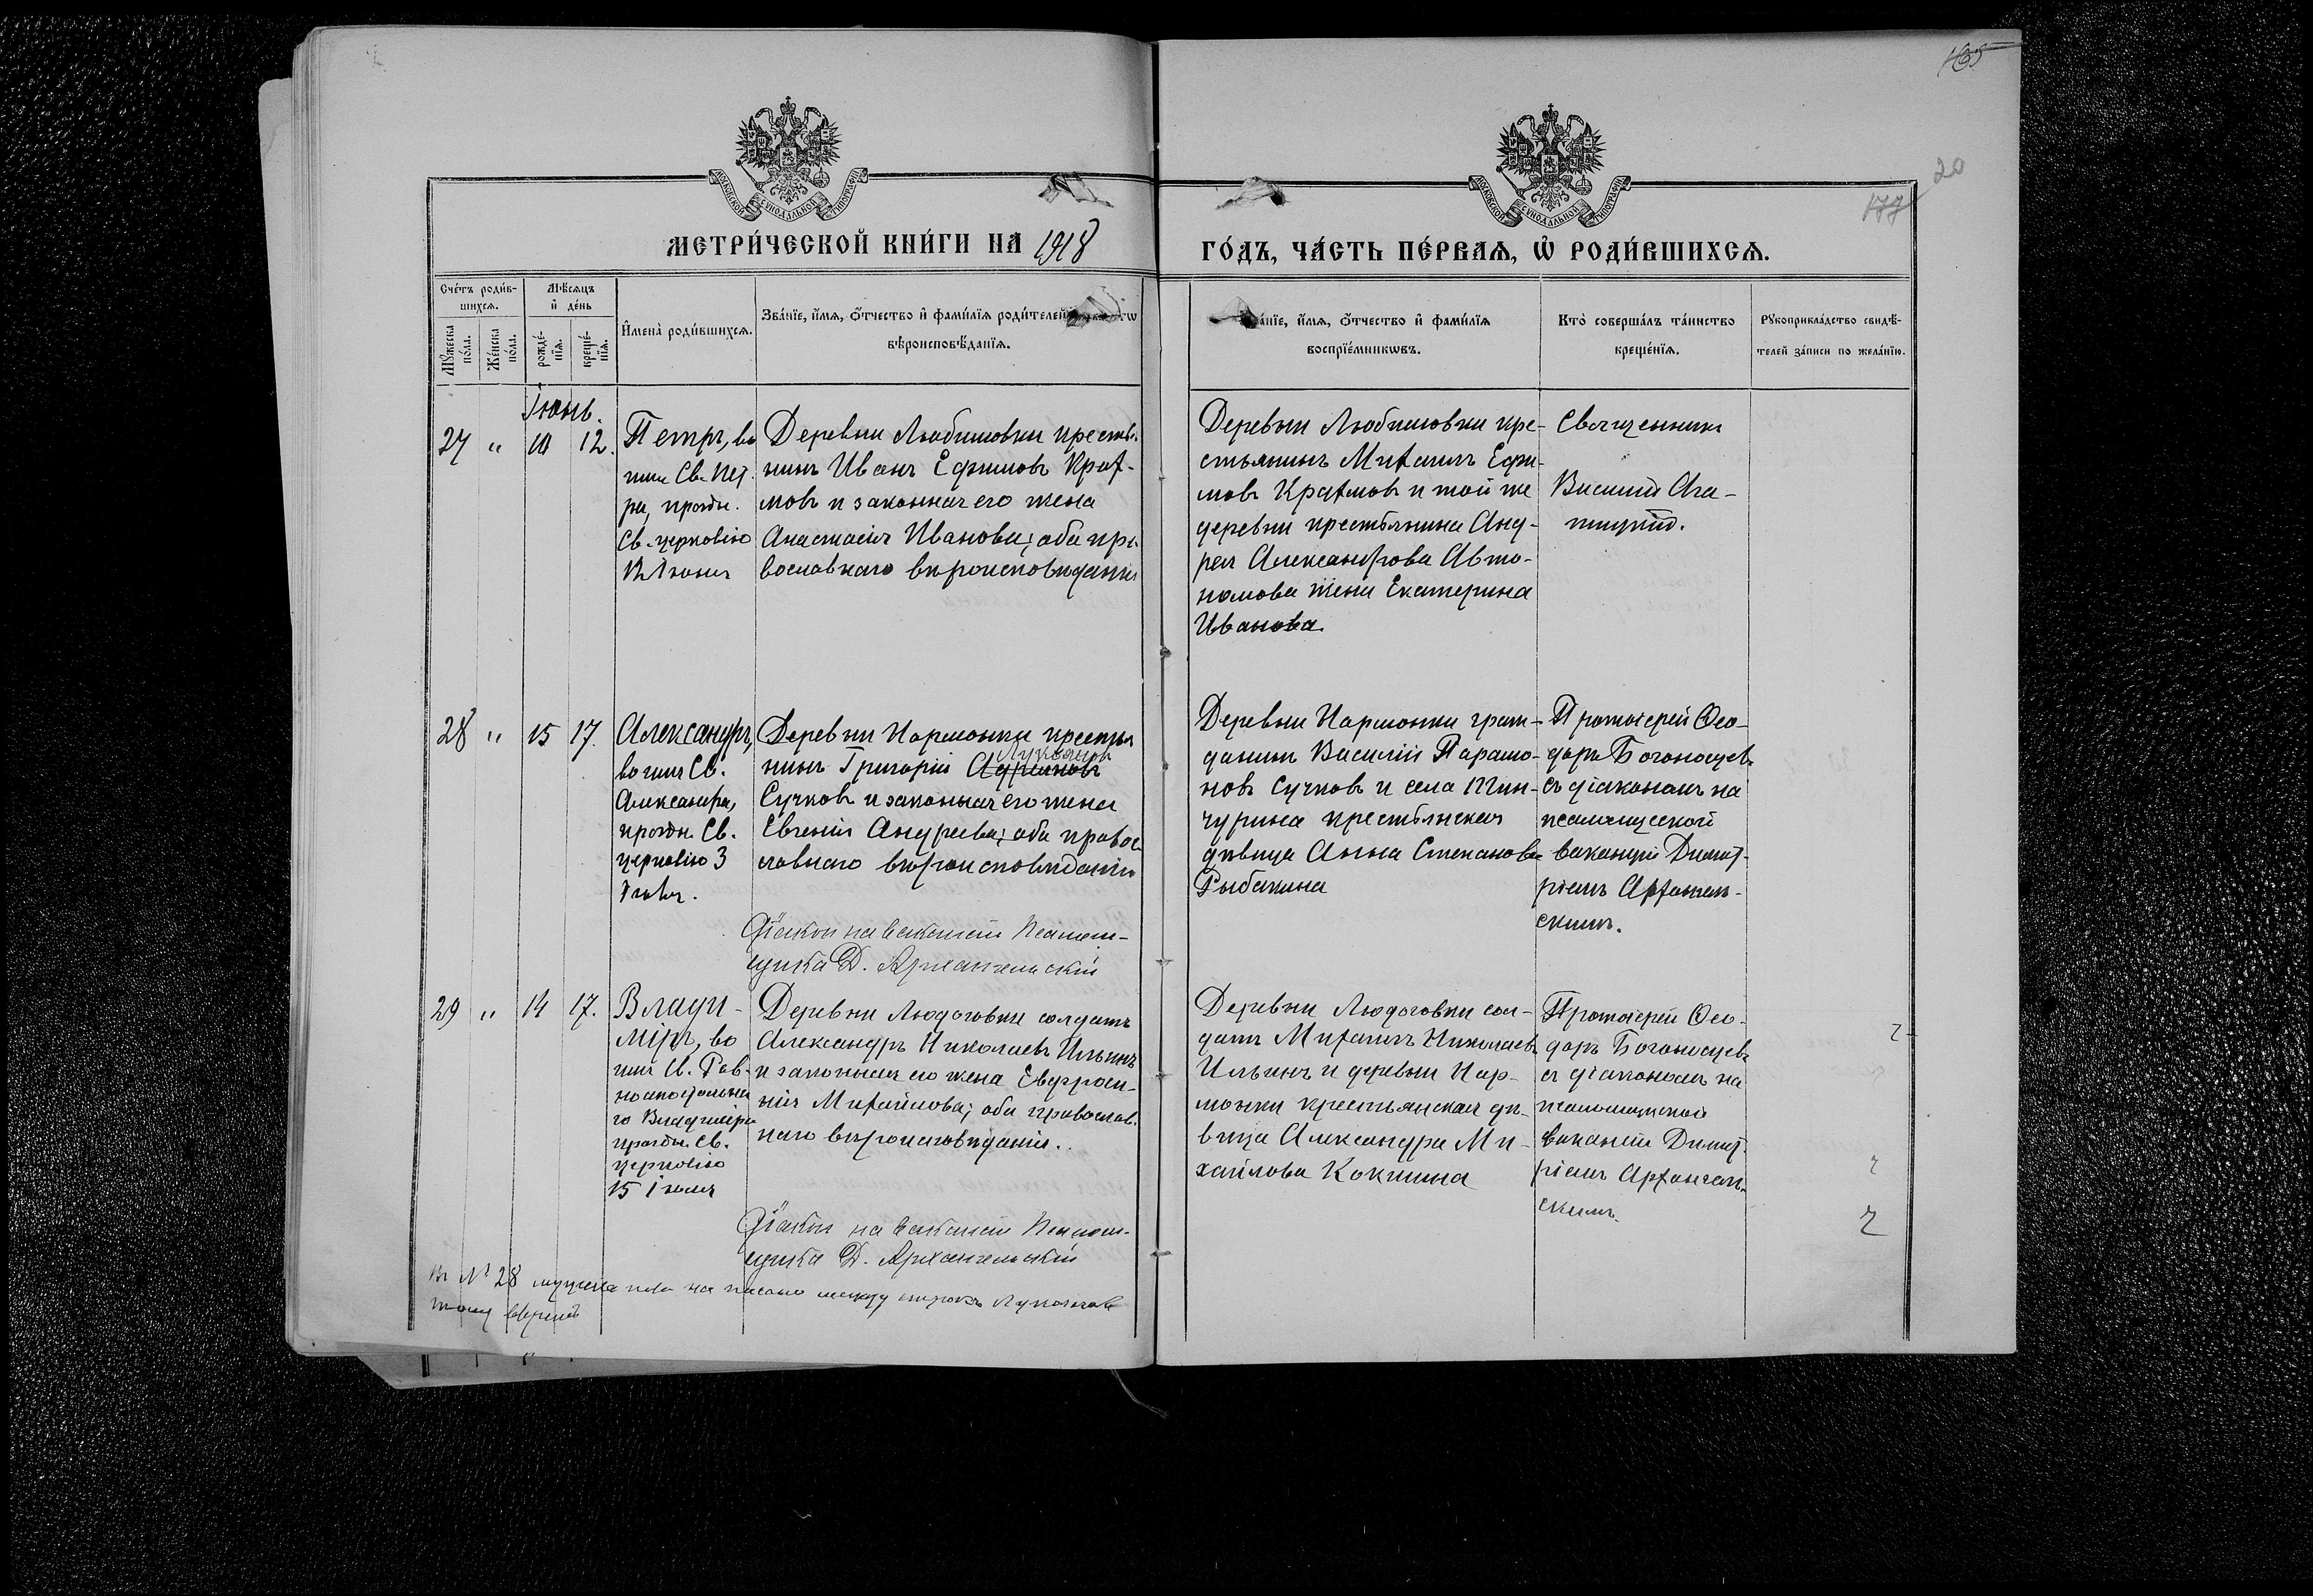 165
20
177
МОСКОВСКОЙ СУНОДАЛЬНОЙ ТИПОГРАФІИ
МОСКОВСКОЙ СУНОДАЛЬНОЙ ТИПОГРАФІИ
МЕТРИ́ЧЕСКОЙ КНИ́ГИ НА 1918
ГО́ДЪ, ЧА́СТЬ ПЕ́РВАѦ, Ѡ҆ РОДИ́ВШИХСѦ.
Сче́тъ роди́в-
шихсѧ.
Мѣ́сѧцъ
и҆ де́нь
Мꙋ́жеска
по́ла.
Же́нска
по́ла.
рожде́-
нїѧ.
креще́-
нїѧ.
И҆мена̀ роди́вшихсѧ.
Зва́нїе, и҆́мѧ, ѻ҆́тчество и҆ фами́лїѧ роди́телей
вѣроисповѣ́данїѧ.
и҆́мѧ, ѻ҆́тчество и҆ фами́лїѧ
воспрїе́мникѡвъ.
Кто̀ соверша́лъ та́инство
креще́нїѧ.
Рꙋкоприкла́дство свидѣ́-
телей за́писи по жела́нїю.
Іюнь.
27 " 10 12.
Петръ, во
имя Св. Пет
ра, праздн.
Св. церковію
12 Іюня
Деревни Любимовки крестья
нинъ Иванъ Ефимовъ Крах-
мовъ и законная его жена
Анастасія Иванова; оба пра
вославнаго вѣроисповѣданія
Деревни Любимовки кре-
стьянинъ Михаилъ Ефи-
мовъ Крахмовъ и той же
деревни крестьянина Анд-
рея Александрова Авто-
номова жена Екатерина
Иванова.
Священникъ
Василій Ага-
пицкій.
28 " 15 17.
Александръ,
во имя Св.
Александра,
праздн. Св.
церковію 3
Іюля.
Деревни Нармонки крестья
Лукьяновъ
нинъ Григорій Адриановъ
Сучковъ и законная его жена
Евгенія Андреева; оба право
славнаго вѣроисповѣданія
Діаконъ на вакансіи Псалом-
щика Д. Архангельскій
Деревни Нармонки граж-
данинъ Василій Парамо-
новъ Сучковъ и села
чурина крестьянская
дѣвица Анна Степанова
Рыбакина
Протоіерей Ѳео-
доръ Богоносцевъ
съ діакономъ на
псаломщической
вакансіи Димит-
ріемъ Архангель-
скимъ.
29 " 14 17.
Влади-
міръ, во
имя Св. Рав-
ноапостольна
го Владиміра
праздн. Св.
церковію
15 Іюля
Деревни Людоговки солдатъ
Александръ Николаевъ Ильинъ
и законная его жена Евфроси-
нія Михайлова; оба православ.
наго вѣроисповѣданія.
Діаконъ на вакансіи Псалом-
щика Д. Архангельскій
Деревни Людоговки сол-
датъ Михаилъ Николаевъ
Ильинъ и деревни Нар-
монки крестьянская дѣ-
вица Александра Ми-
хайлова Кокшина
Протоіерей Ѳео-
доръ Богоносцевъ
съ діакономъ на
псаломщической
вакансіи Димит
ріемъ Архангель
скимъ.
Въ № 28 мужска пола на писано между строкъ Лукьяновъ
тому вѣрить